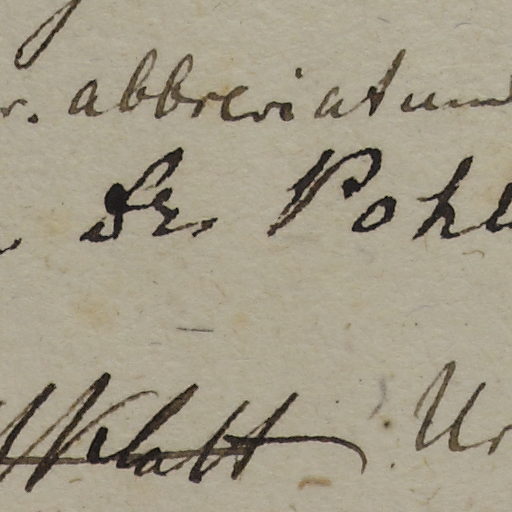 r. abbreviatum
Dr. Pohl
Klatt Ur